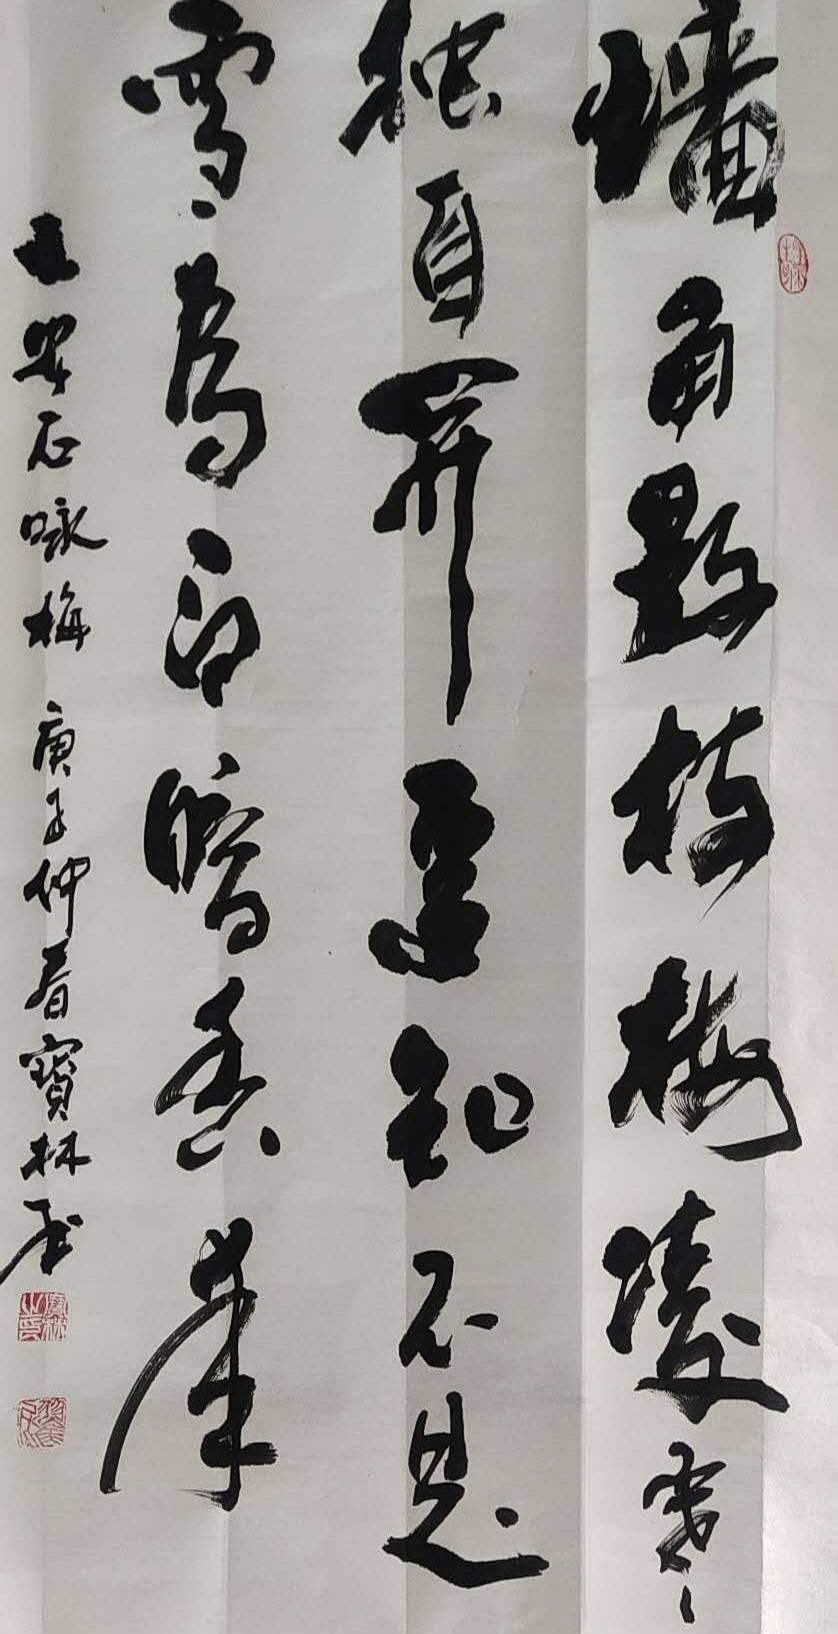 墙角数枝梅凌寒
独自開遥知不是
雪為有暗香来
王安石咏梅 庚子仲春寶林书